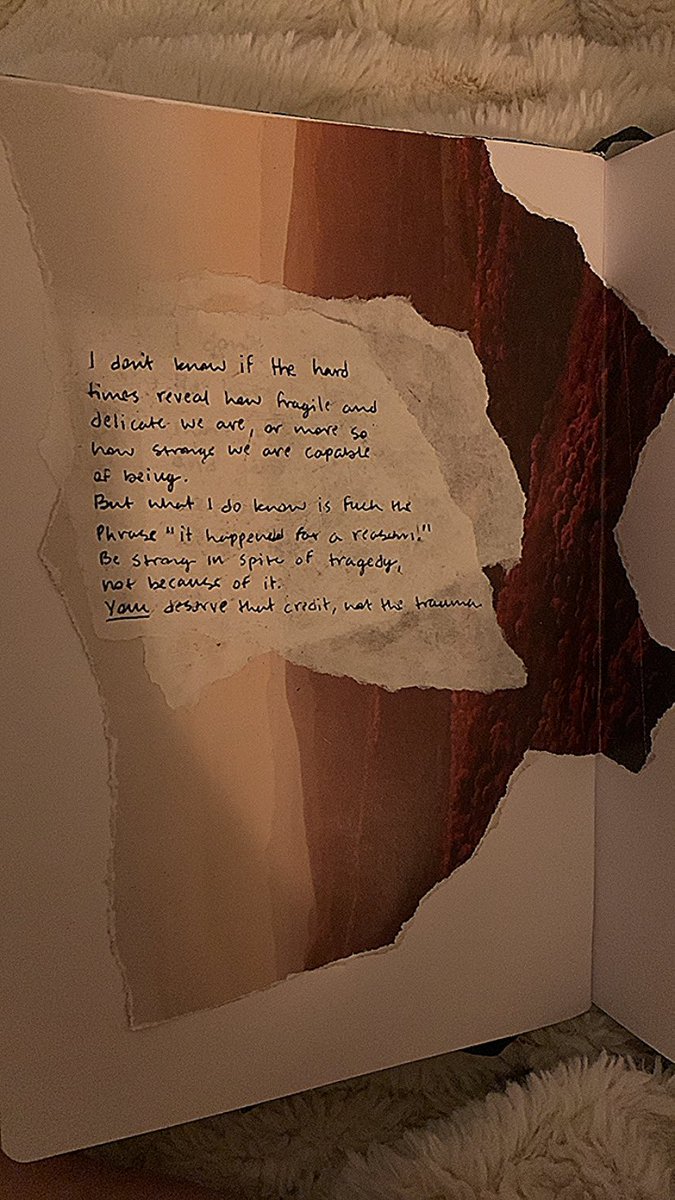 I don't know if the hard
times reveal how fragile and
delicate we are, or more so
how strong we are capable
of being.
But what I do know is fuck the
Phrase "it happened for a reason!"
Be strong in spite of tragedy,
not because of it.
You deserve that credit, not the trauma